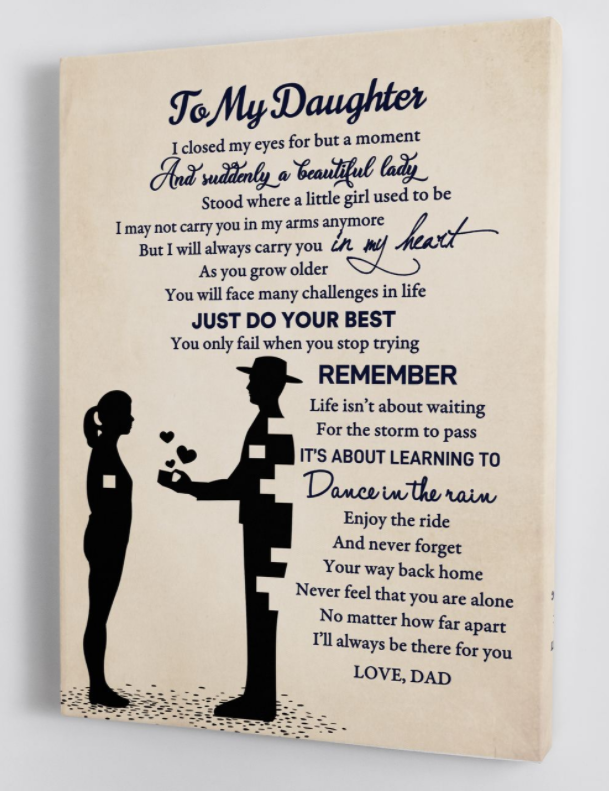 To My Daughter
I closed my eyes for but a moment
And suddenly a beautiful lady
Stood where a little girl used to be
I may not carry you in my arms anymore
But I will always carry you in my heart
As you grow older
You will face many challenges in life
JUST DO YOUR BEST
You only fail when you stop trying
REMEMBER
Life isn't about waiting
For the storm to pass
IT'S ABOUT LEARNING TO
Dance in the rain
Enjoy the ride
And never forget
Your way back home
Never feel that you are alone
No matter how far apart
I'll always be there for you
LOVE, DAD